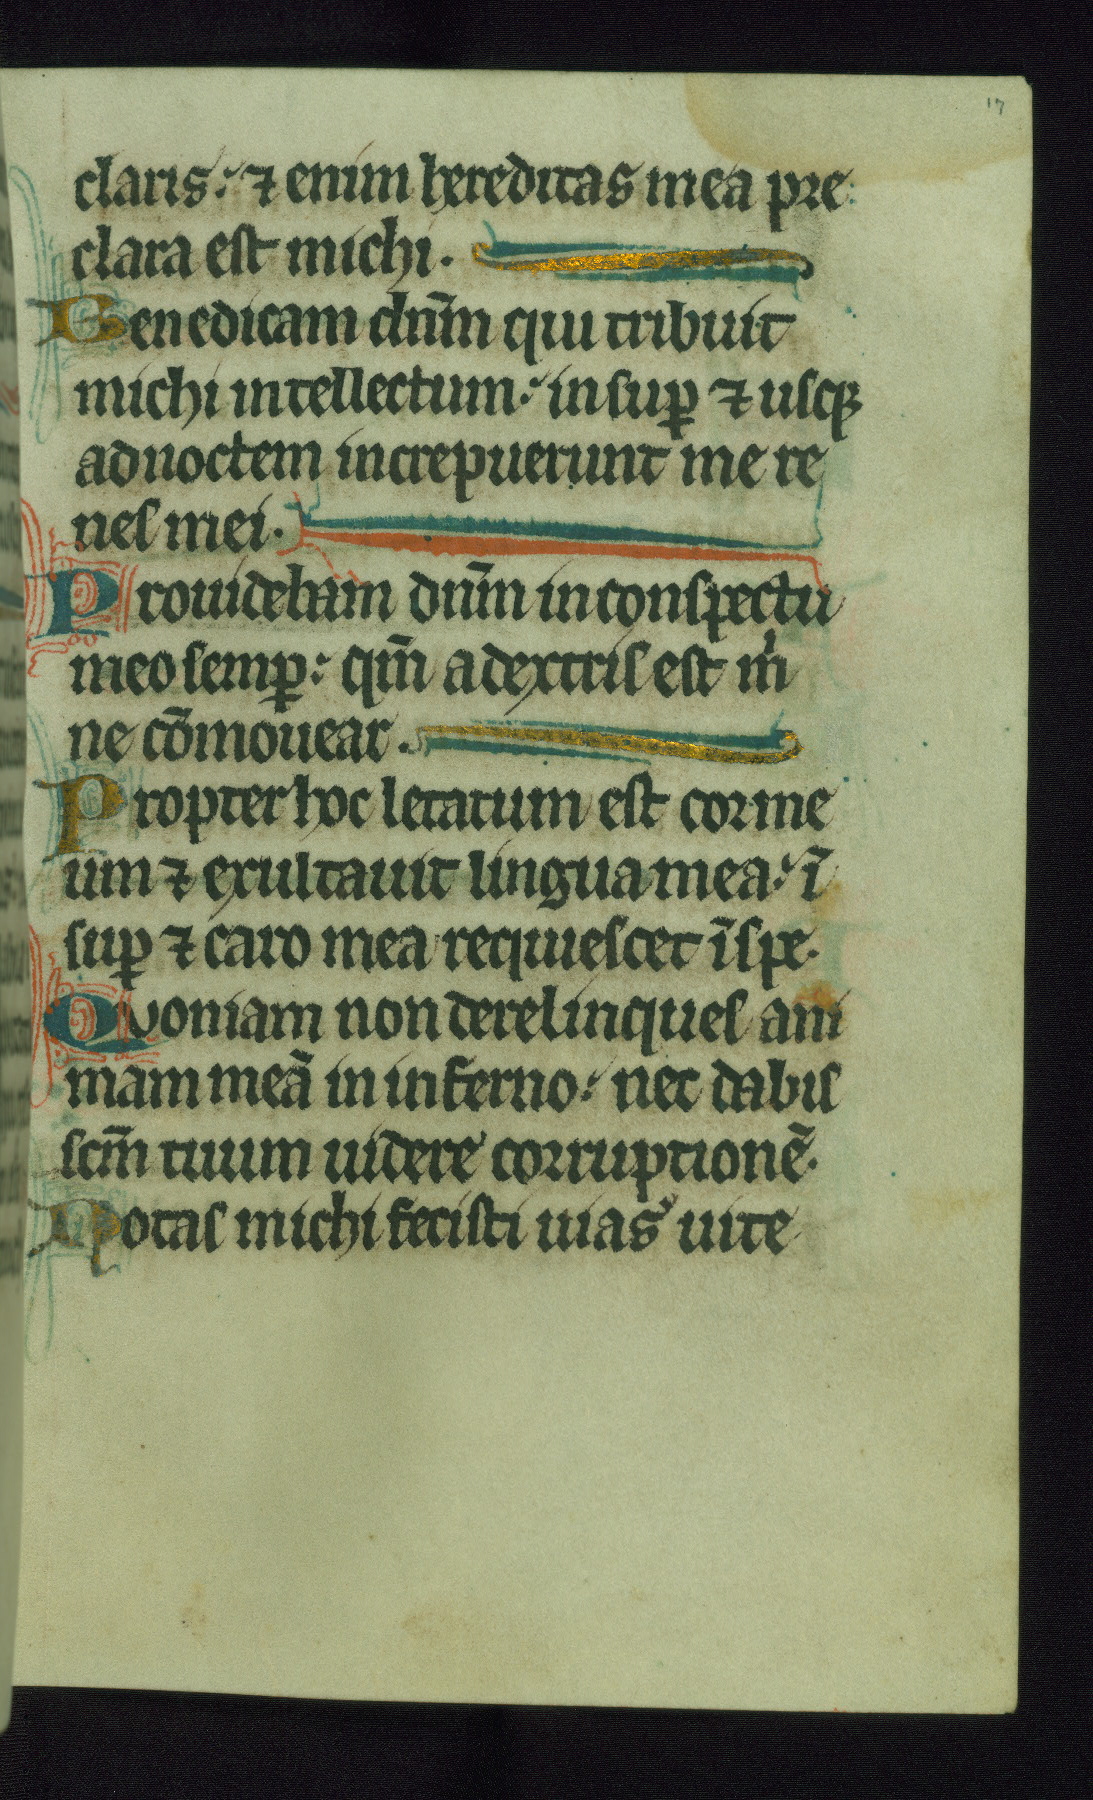 17
claris: ⁊ enim hereditas mea pre
clara est michi.
Benedicam dnm̄ qui tribuit
michi intellectum: insuꝑ ⁊ usqꝫ
ad noctem increpuerunt me re
nes mei.
Prouidebam dnm̄ in conspectu
meo semꝑ: qm̄ a dextris est m̍
ne cōmouear.
Propter hoc letatum est cor me
um ⁊ exultauit lingua mea: ī
suꝑ ⁊ caro mea requiescet ī spe.
Quoniam non derelinques ani
mam meā in inferno: nec dabis
scm̄ tuum uidere corruptionē.
Notas michi fecisti uias uite